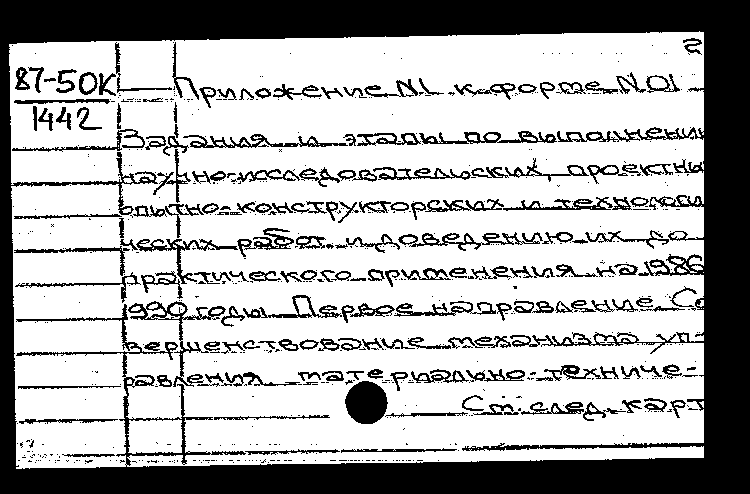 2
87-50К
1442
Приложение N1 к форме N01
Задания и этапы по выполнени
научно-исследовательских, проектны
опытно-конструкторских и технологи
ческих работ и доведению их до
практического применения на 1986
1990 годы. Первое направление. Со
вершенствование механизма уп-
равления материально-техниче-
См. след. карт